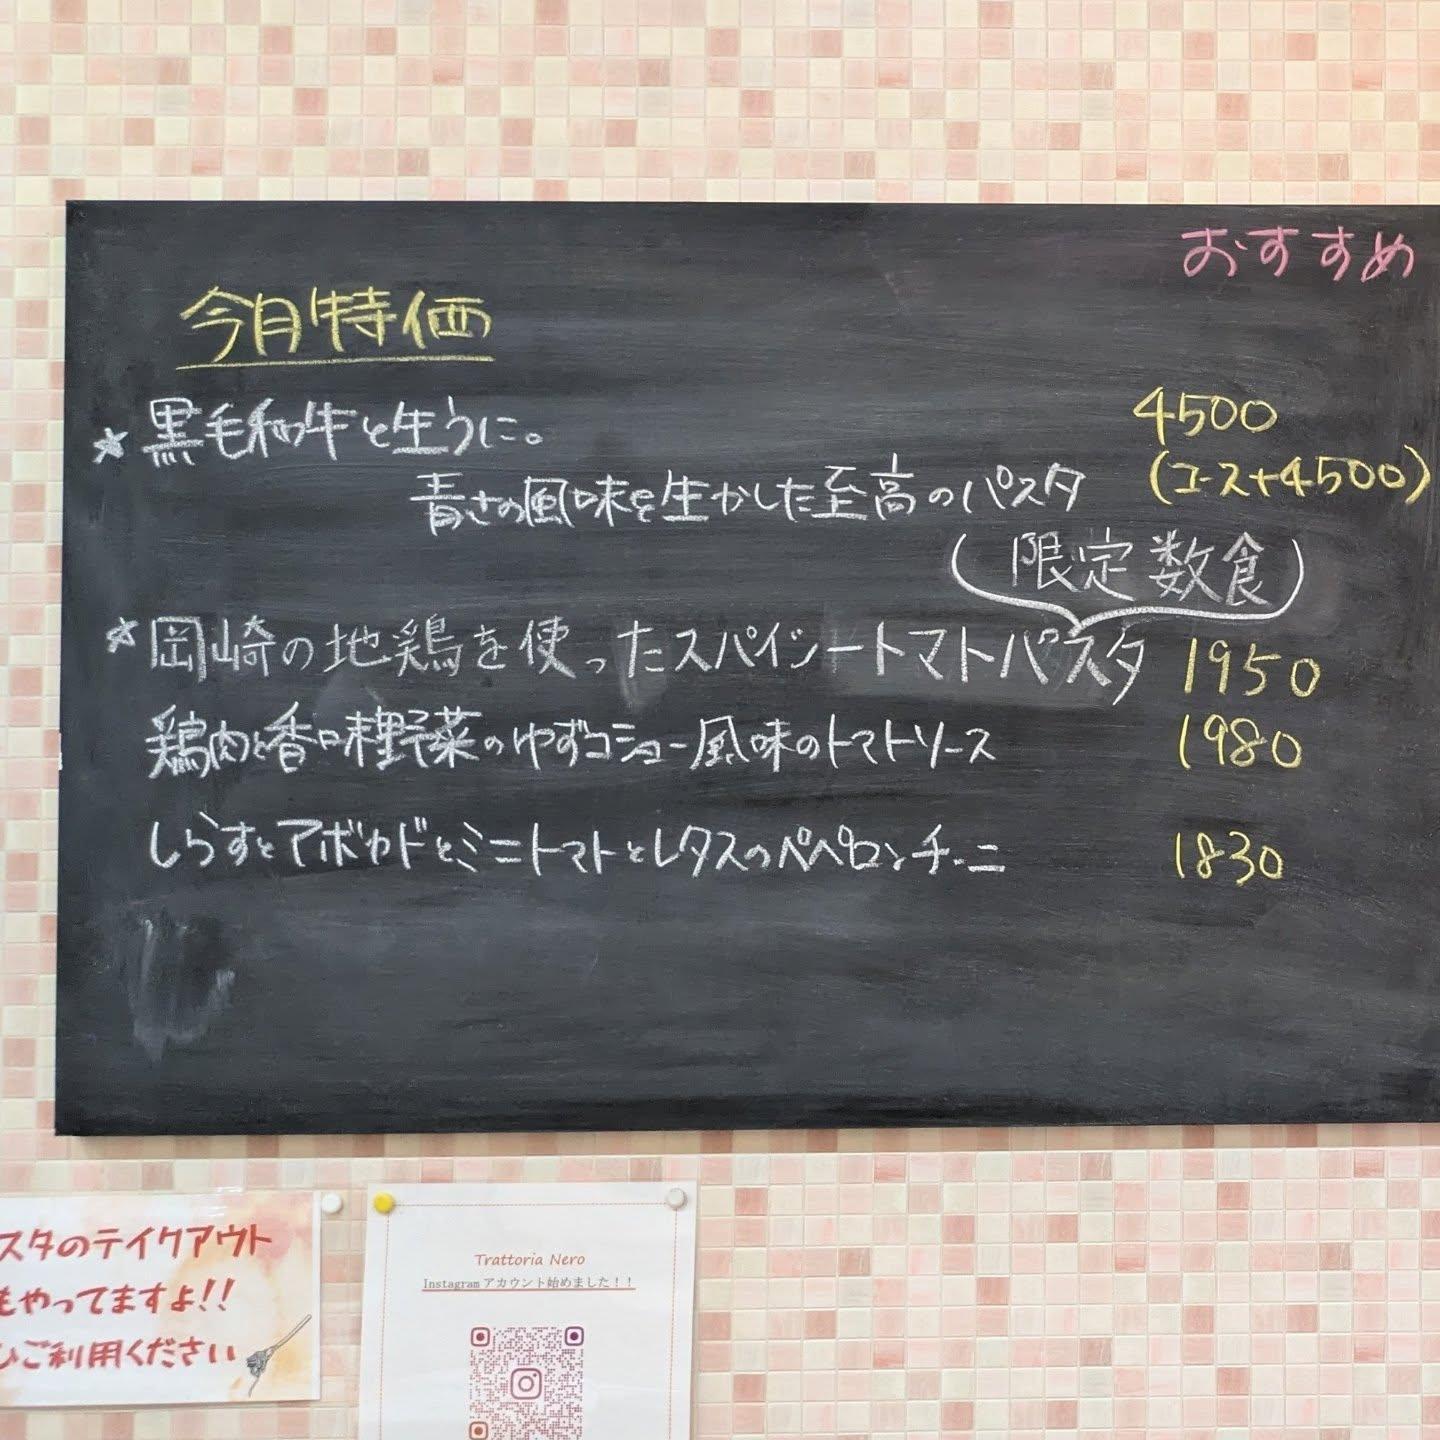 おすすめ
今月特価
☆黒毛和牛と生うに。 4500
青さの風味を生かした至高のパスタ (コース+4500)
(限定数食)
☆岡崎の地鶏を使ったスパイシートマトパスタ 1950
鶏肉と香味野菜のゆずコショー風味のトマトソース 1980
しらすとアボカドとミニトマトとレタスのペペロンチーニ 1830
スタのテイクアウト
もやってますよ!!
ひご利用ください
Trattoria Nero
Instagramアカウント始めました！！